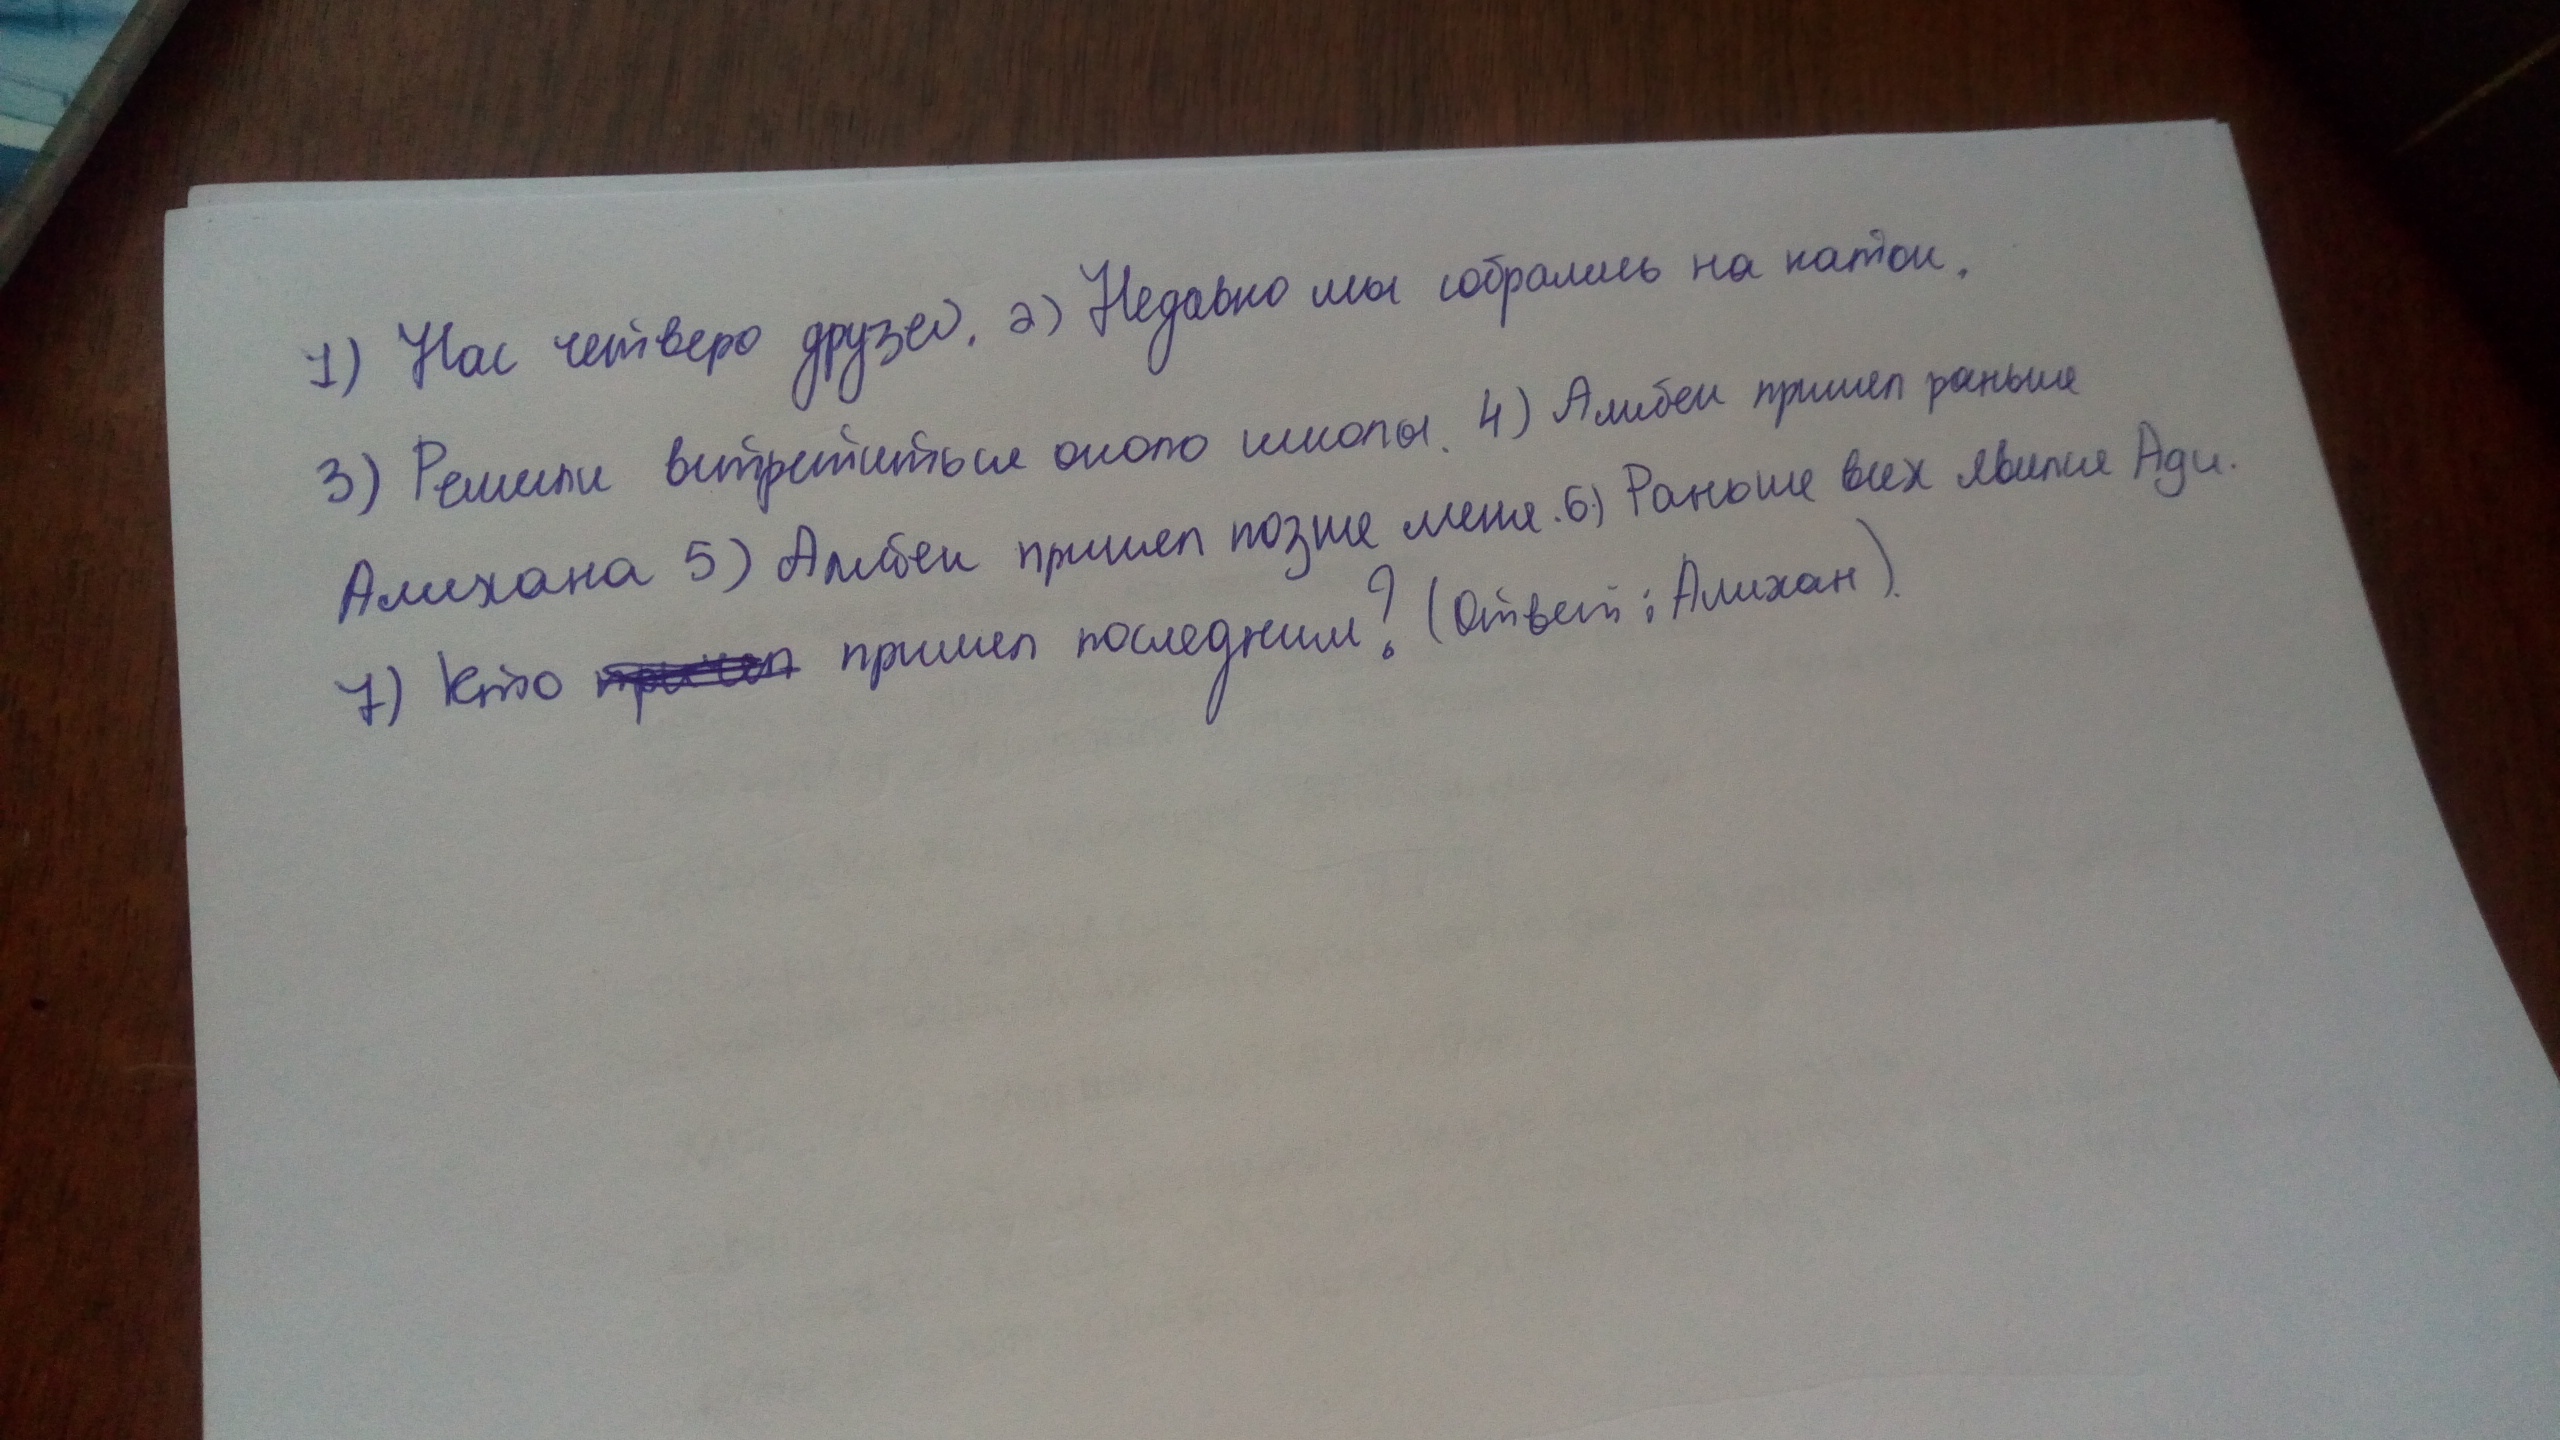 1) Нас четверо друзей. 2) Недавно мы собрались на каток.
3) Решили встретиться около школы. 4) Алибек пришел раньше
Алихана 5) Алибек пришел позже меня. 6) Раньше всех явился Ади.
7) Кто пришел последним? (Ответ: Алихан).